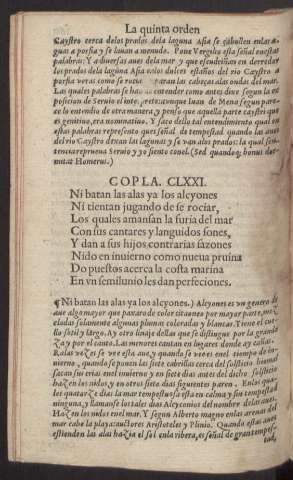 La quinta orden
Caystro cerca de los prados dela laguna Asia se çabullen enlas a-
guas a porfia y se lauan a menudo. Pone Vergilio esta señal en estas
palabras: Y a diuersas aues dela mar y que escudriñan en derredor
los prados dela laguna Asia enlos dulces estaños del rio Caystro a
porfia veras como se rocian las cabeças alas ondas del mar.
Las quales palabras se han de entender como antes dixe segun la ex
posicion de Seruio el interprete: aunque Iuan de Mena segun pare-
ce lo entendio de otra manera y penso que aquella parte caystri que
es genitiuo, era nominatiuo. Y saco dello tal entendimiento qual en
estas palabras represento que es señal de tempestad quando las aues
del rio Caystro dexan las lagunas y se van alos prados: la qual sen-
tencia reprueua Seruio y yo siento conel. (Sed quandoq; bonus dor-
mitat Homerus.)
COPLA. CLXXI.
Ni batan las alas ya los alcyones
Ni tientan jugando de se rociar,
Los quales amansan la furia del mar
Con sus cantares y languidos sones,
Y dan a sus hijos contrarias sazones
Nido en inuierno como nueua pruina
Do puestos acerca la costa marina
En vn semilunio les dan perfeciones.
¶Ni batan las alas ya los alcyones.) Alcyones es vn genero de
aue algo mayor que paxaro de color citaneo por mayor parte, mez
cladas solamente algunas plumas coloradas y blancas. Tiene el cue-
llo sotil y largo. Ay otro linaje dellas que se distingue por la grande
za y por el canto. Las menores cantan en lugares donde ay cañas.
Ralas vezes se vee esta aue, y quando se vee es enel tiempo de in-
uierno, quando se ponen las siete cabrillas cerca del solsticio hiemal
sacan sus crias enel inuierno y en siete dias antes del dicho solsticio
hazen los nidos, y en otros siete dias siguientes paren. Enlos qua-
les quatorze dias la mar tempestuosa esta en calma y sin tempestad
ninguna, y llamanse los tales dias Alcyonios del nombre delas aues.
Hazen los nidos enel mar. Y segun Alberto magno enlas arenas del
mar cabe la playa: auctores Aristoteles y Plinio. Quando estas aues
estienden las alas hazia el sol enla ribera, es señal de gran tempes-
tad,